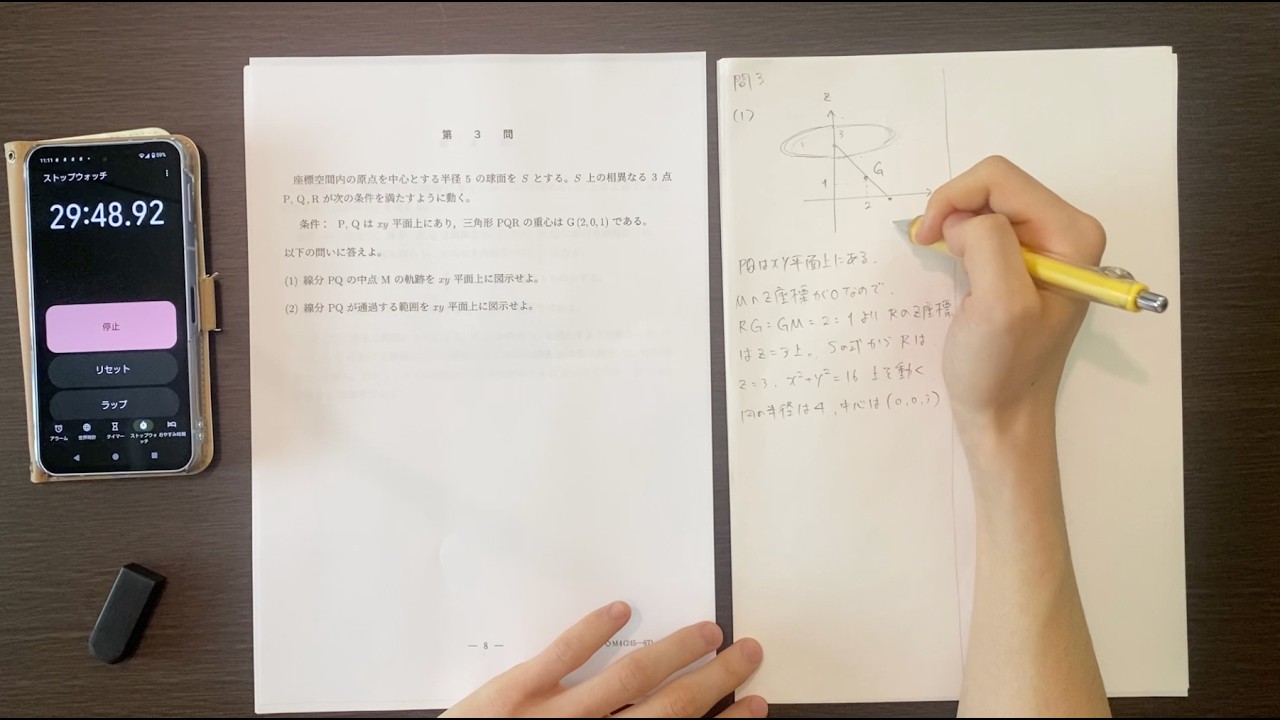 11:11
59%
ストップウォッチ
29:48.92
停止
リセット
ラップ
アラーム
世界時計
タイマー
ストップウォッチ
おやすみ時間
第 3 問
座標空間内の原点を中心とする半径 5 の球面を S とする。S 上の相異なる 3 点
P, Q, R が次の条件を満たすように動く。
条件： P, Q は xy 平面上にあり，三角形 PQR の重心は G(2, 0, 1) である。
以下の問いに答えよ。
(1) 線分 PQ の中点 M の軌跡を xy 平面上に図示せよ。
(2) 線分 PQ が通過する範囲を xy 平面上に図示せよ。
— 8 —
問3
(1)
z
3
G
1
2
PQはxy平面上にある.
Mのz座標が0なので.
RG:GM=2:1より Rのz座標
はz=3上。Sの式から Rは
z=3, x²+y²=16 上を動く
円の半径は4, 中心は(0,0,3)